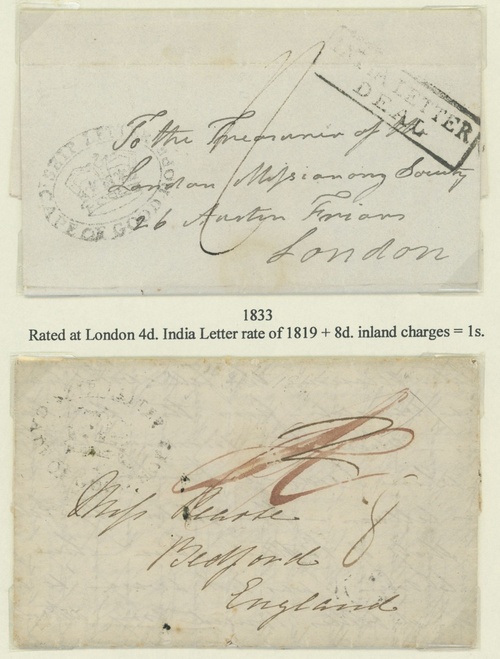 INDIA LETTER
DEAL
SHIP LETTER
CAPE OF GOOD HOPE
To the Treasurer of the
London Missionary Society
26 Austin Friars
London
1833
Rated at London 4d. India Letter rate of 1819 + 8d. inland charges = 1s.
Miss Pearse
Bedford
8
England